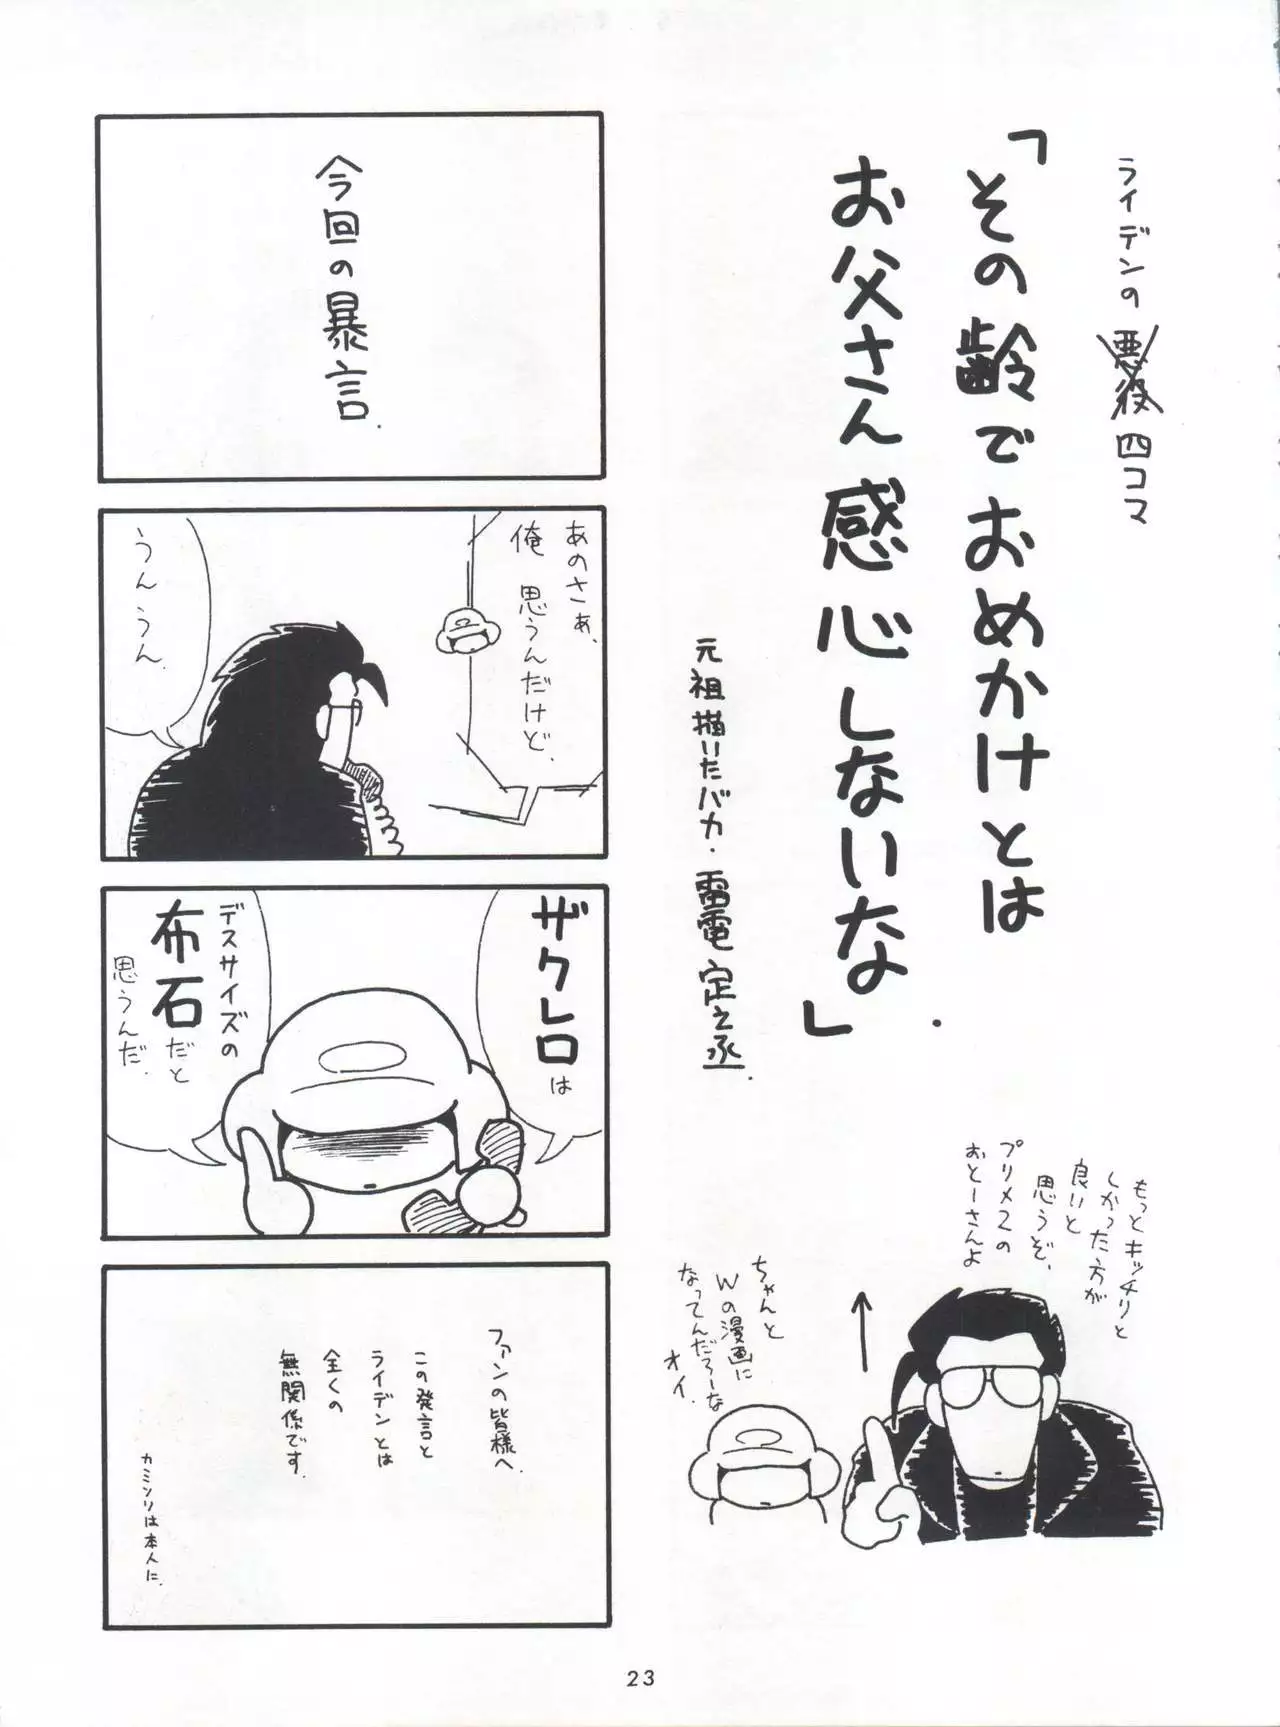 ライデンの悪役四コマ
「その齢でおめかけとは
お父さん感心しないな」
元祖描いたバカ・雷電定之丞.
もっとキッチリと
しかった方が
良いと
思うぞ、
プリメ2の
おとーさんよ
ちゃんと
Wの漫画に
なってんだろーな
オイ.
今回の暴言.
あのさぁ、
俺思うんだけど、
うんうん.
ザクレロは
デスサイズの
布石だと
思うんだ.
ファンの皆様へ.
この発言と
ライデンとは
全くの
無関係です.
カミソリは本人に.
23